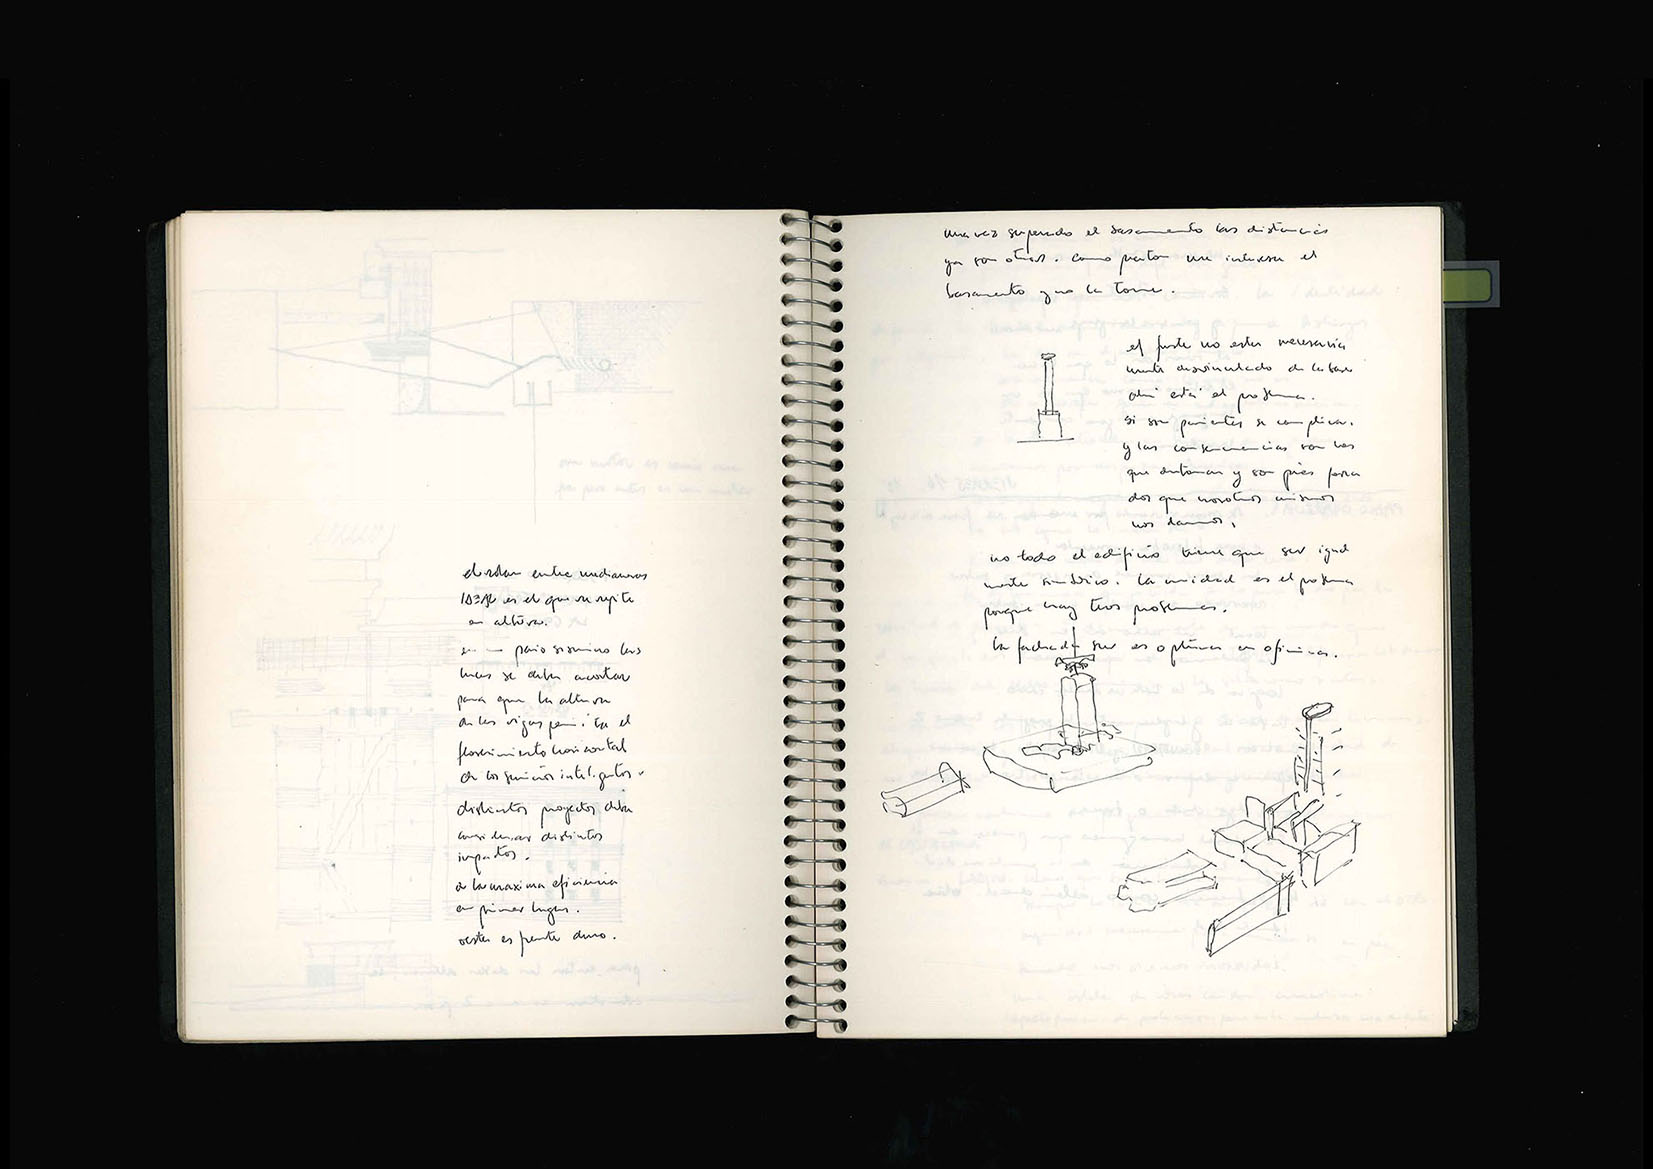 el solar entre medianeras
IDEAL es el que se repite
en altura.
en un país sísmico las
luces se deben acortar
para que la altura
de las vigas permita el
florecimiento horizontal
de los servicios inteligentes.
distintos proyectos deben
considerar distintos
impactos.
a la maxima eficiencia
en primer lugar.
oeste es frente duro.
una vez superado el basamento las distancias
ya son otras. como peaton me interesa el
basamento y no la torre.
el fuste no esta necesaria
mente desvinculado de la base
ahí está el problema.
si son parientes se complica.
y las consecuencias son las
que anotamos y son pies forza
dos que nosotros mismos
nos damos.
no todo el edificio tiene que ser igual
mente simétrico. la unidad es el problema
porque hay tres problemas.
la fachada sur es optima en oficinas.